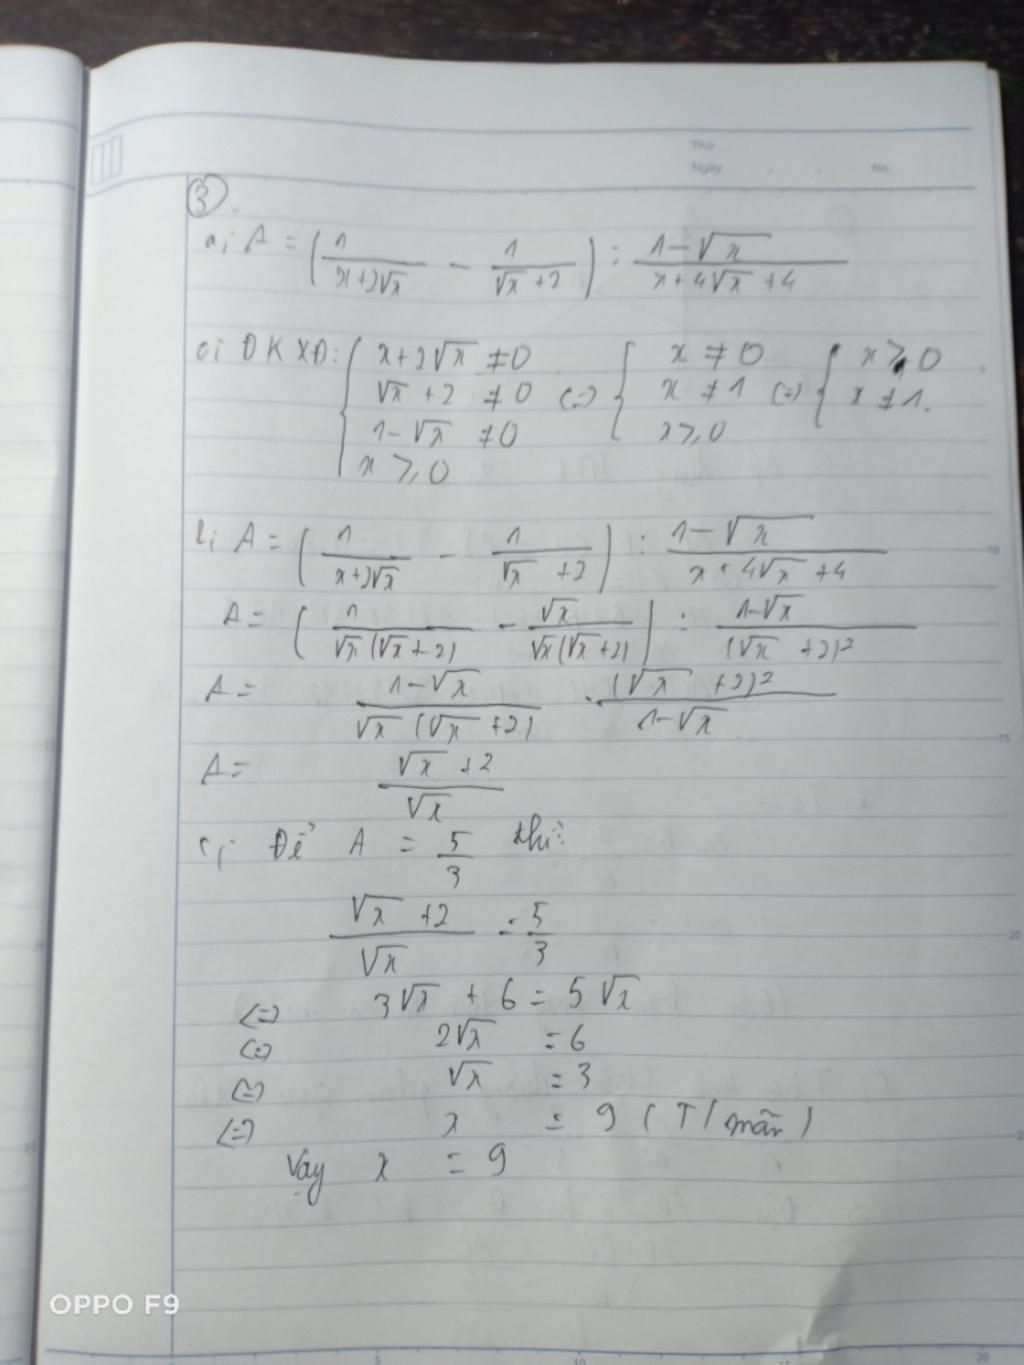 Thứ
Ngày . . No.
3.
a; A = (1/(x+2√x) − 1/(√x+2)) : (1−√x)/(x+4√x+4)
a; ĐKXĐ: { x+2√x ≠0 ; √x+2 ≠0 ; 1−√x ≠0 ; x ≥ 0 (=) { x ≠ 0 ; x ≠ 1 ; x ≥ 0 (=) { x > 0 ; x ≠ 1.
b; A = (1/(x+2√x) − 1/(√x+2)) : (1−√x)/(x+4√x+4)
A = (1/(√x(√x+2)) − √x/(√x(√x+2))) : (1−√x)/(√x+2)²
A = (1−√x)/(√x(√x+2)) · (√x+2)²/(1−√x)
A = (√x+2)/√x
c; Để A = 5/3 thì:
(√x+2)/√x = 5/3
(=) 3√x + 6 = 5√x
(=) 2√x = 6
(=) √x = 3
(=) x = 9 (T/mãn)
Vậy x = 9
OPPO F9